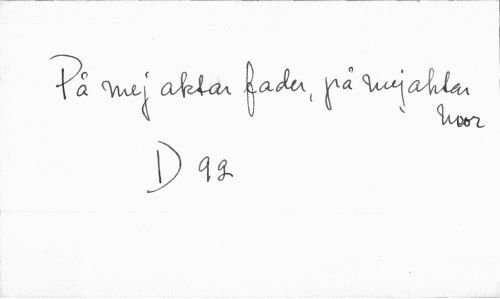 På mej aktar fader, på mej aktar
moor
D 92